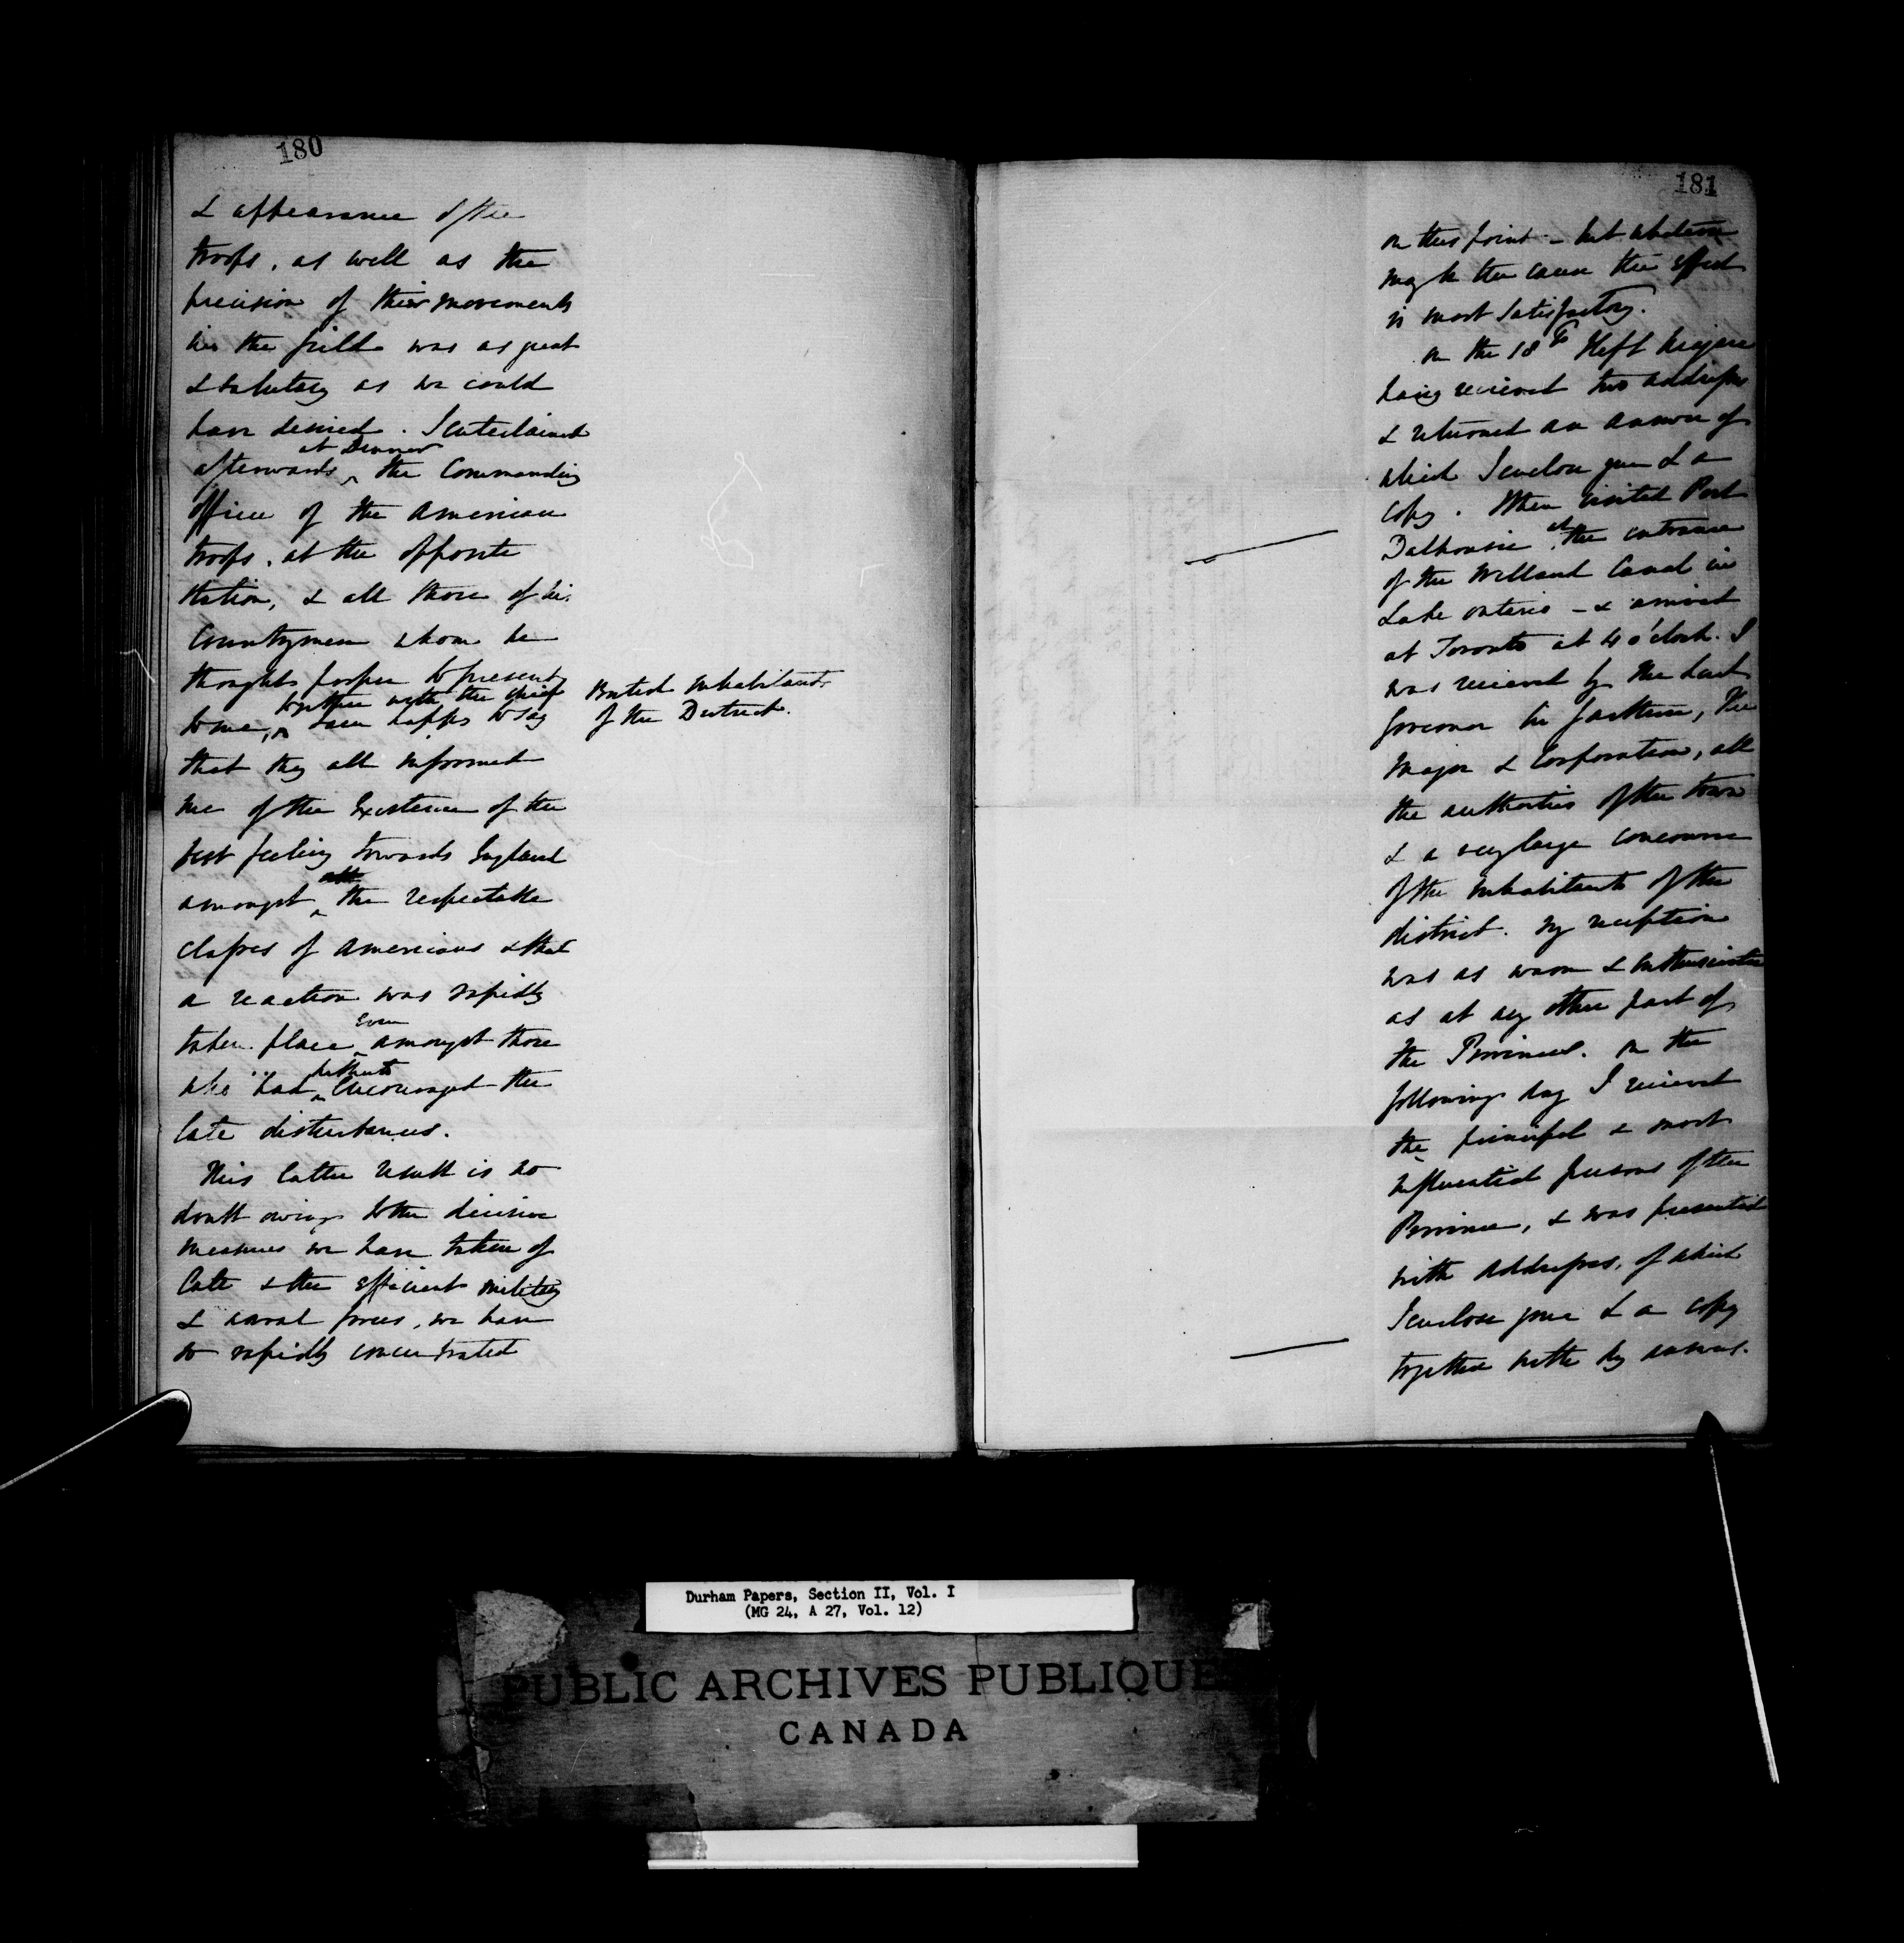 180
& appearance of the
troops, as well as the
precision of their movements
in the field was as great
& salutary as we could
have desired. I entertained
at Dinner
afterwards ^ the Commanding
Officer of the American
troops, at the opposite
Station, & all those of his
Countrymen whom he
thought proper to present
together with the chief British Inhabitants
to me, ^ I am happy to say of the District.
that they all informed
me of the Existence of the
best feeling towards England
amongst ^ the respectable
classes of Americans & that
a reaction was rapidly
even
taken place ^ amongst those
hitherto
who had ^ encouraged the
late disturbances.
This latter result is no
doubt owing to the decisive
measures we have taken of
late & the efficient military
& naval forces, we have
so rapidly concentrated
181
on this point – but whatever
may be the cause the effect
is most satisfactory.
On the 18th I left Niagara
having received two addresses
& returned an answer of
which I enclose your Ld a
copy. I then visited Port
at
Dalhousie ^ the entrance
of the Welland Canal in
Lake Ontario – & arrived
at Toronto at 4 o'clock. I
was received by the Lieut
Governor Sir G. Arthur, the
Mayor & Corporation, all
the authorities of the town
& a very large concourse
of the Inhabitants of the
district. My reception
was as warm & enthusiastic
as at any other part of
the Provinces. On the
following day I received
the principal & most
influential persons of the
Province, & was presented
with Addresses, of which
I enclose your Ld a copy
together with my answers.
Durham Papers, Section II, Vol. I
(MG 24, A 27, Vol. 12)
PUBLIC ARCHIVES PUBLIQUE
CANADA